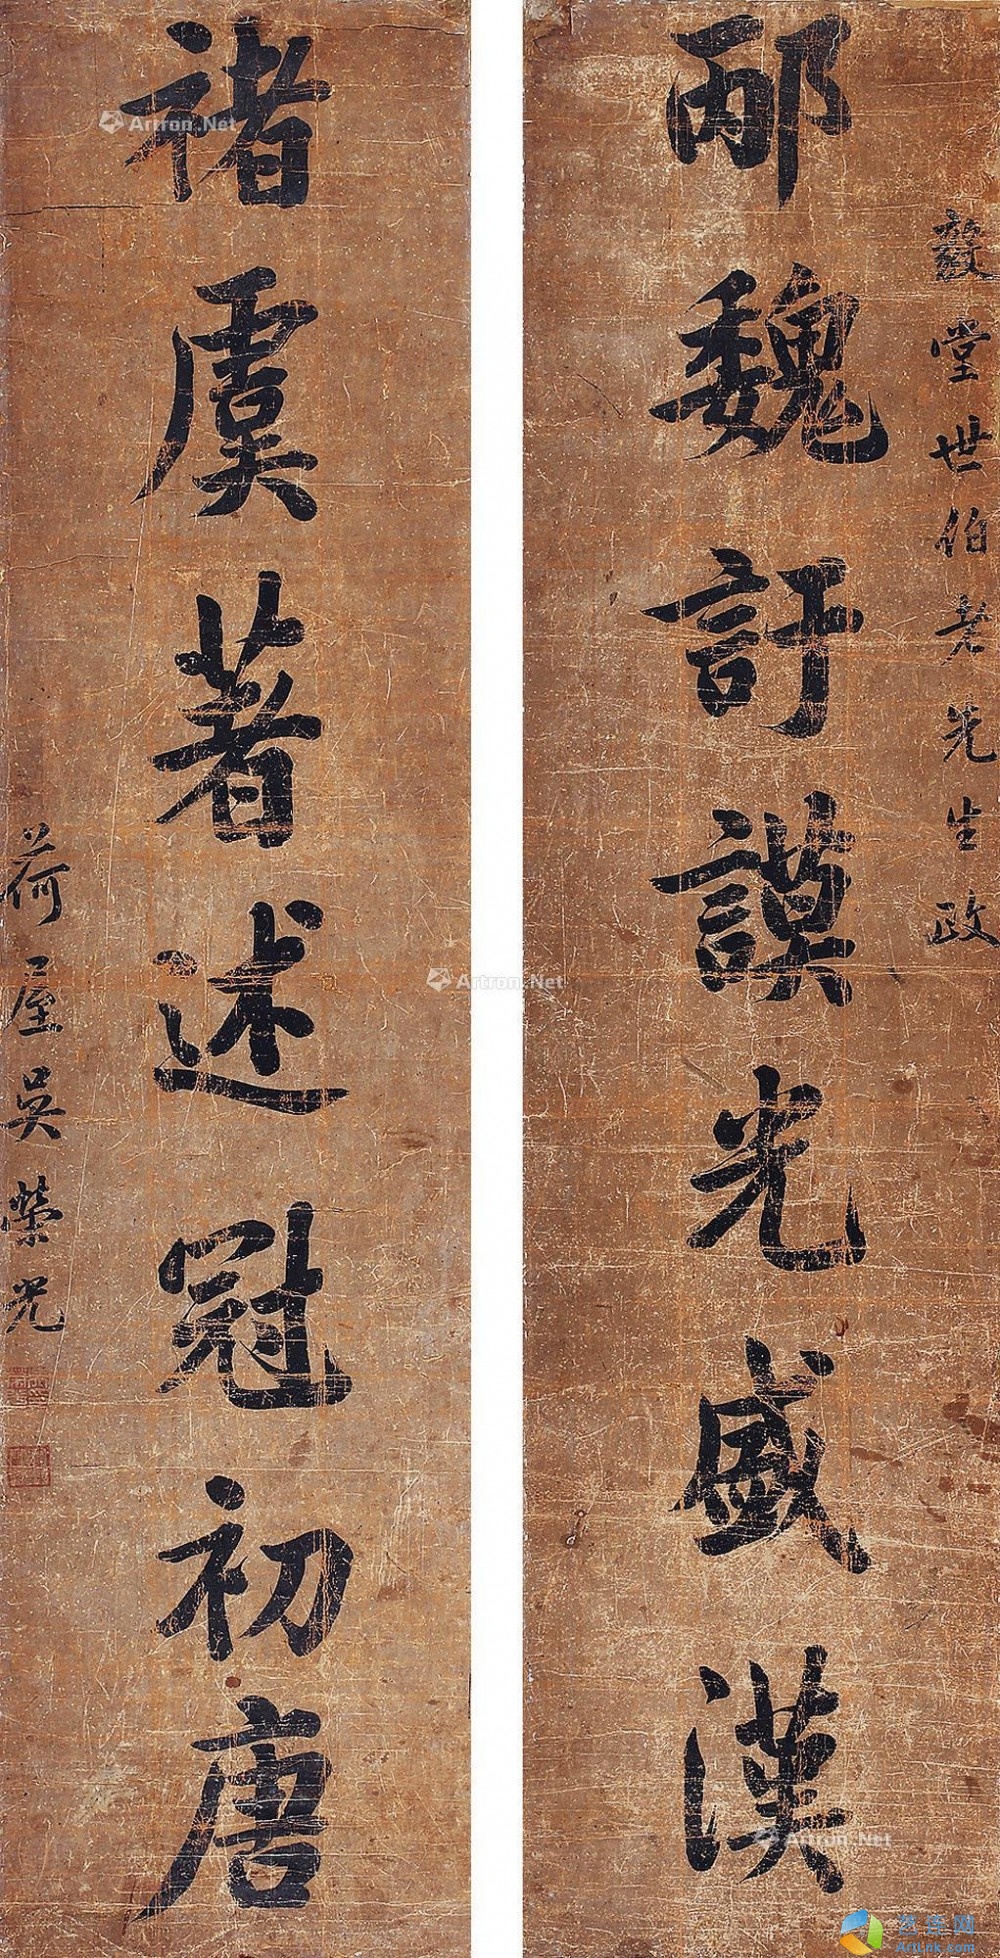 邴魏訏謨光盛漢
堂世伯老先生政
褚虞著述冠初唐
荷屋吳榮光
Artron.Net
Artron.Net
Artron.Net